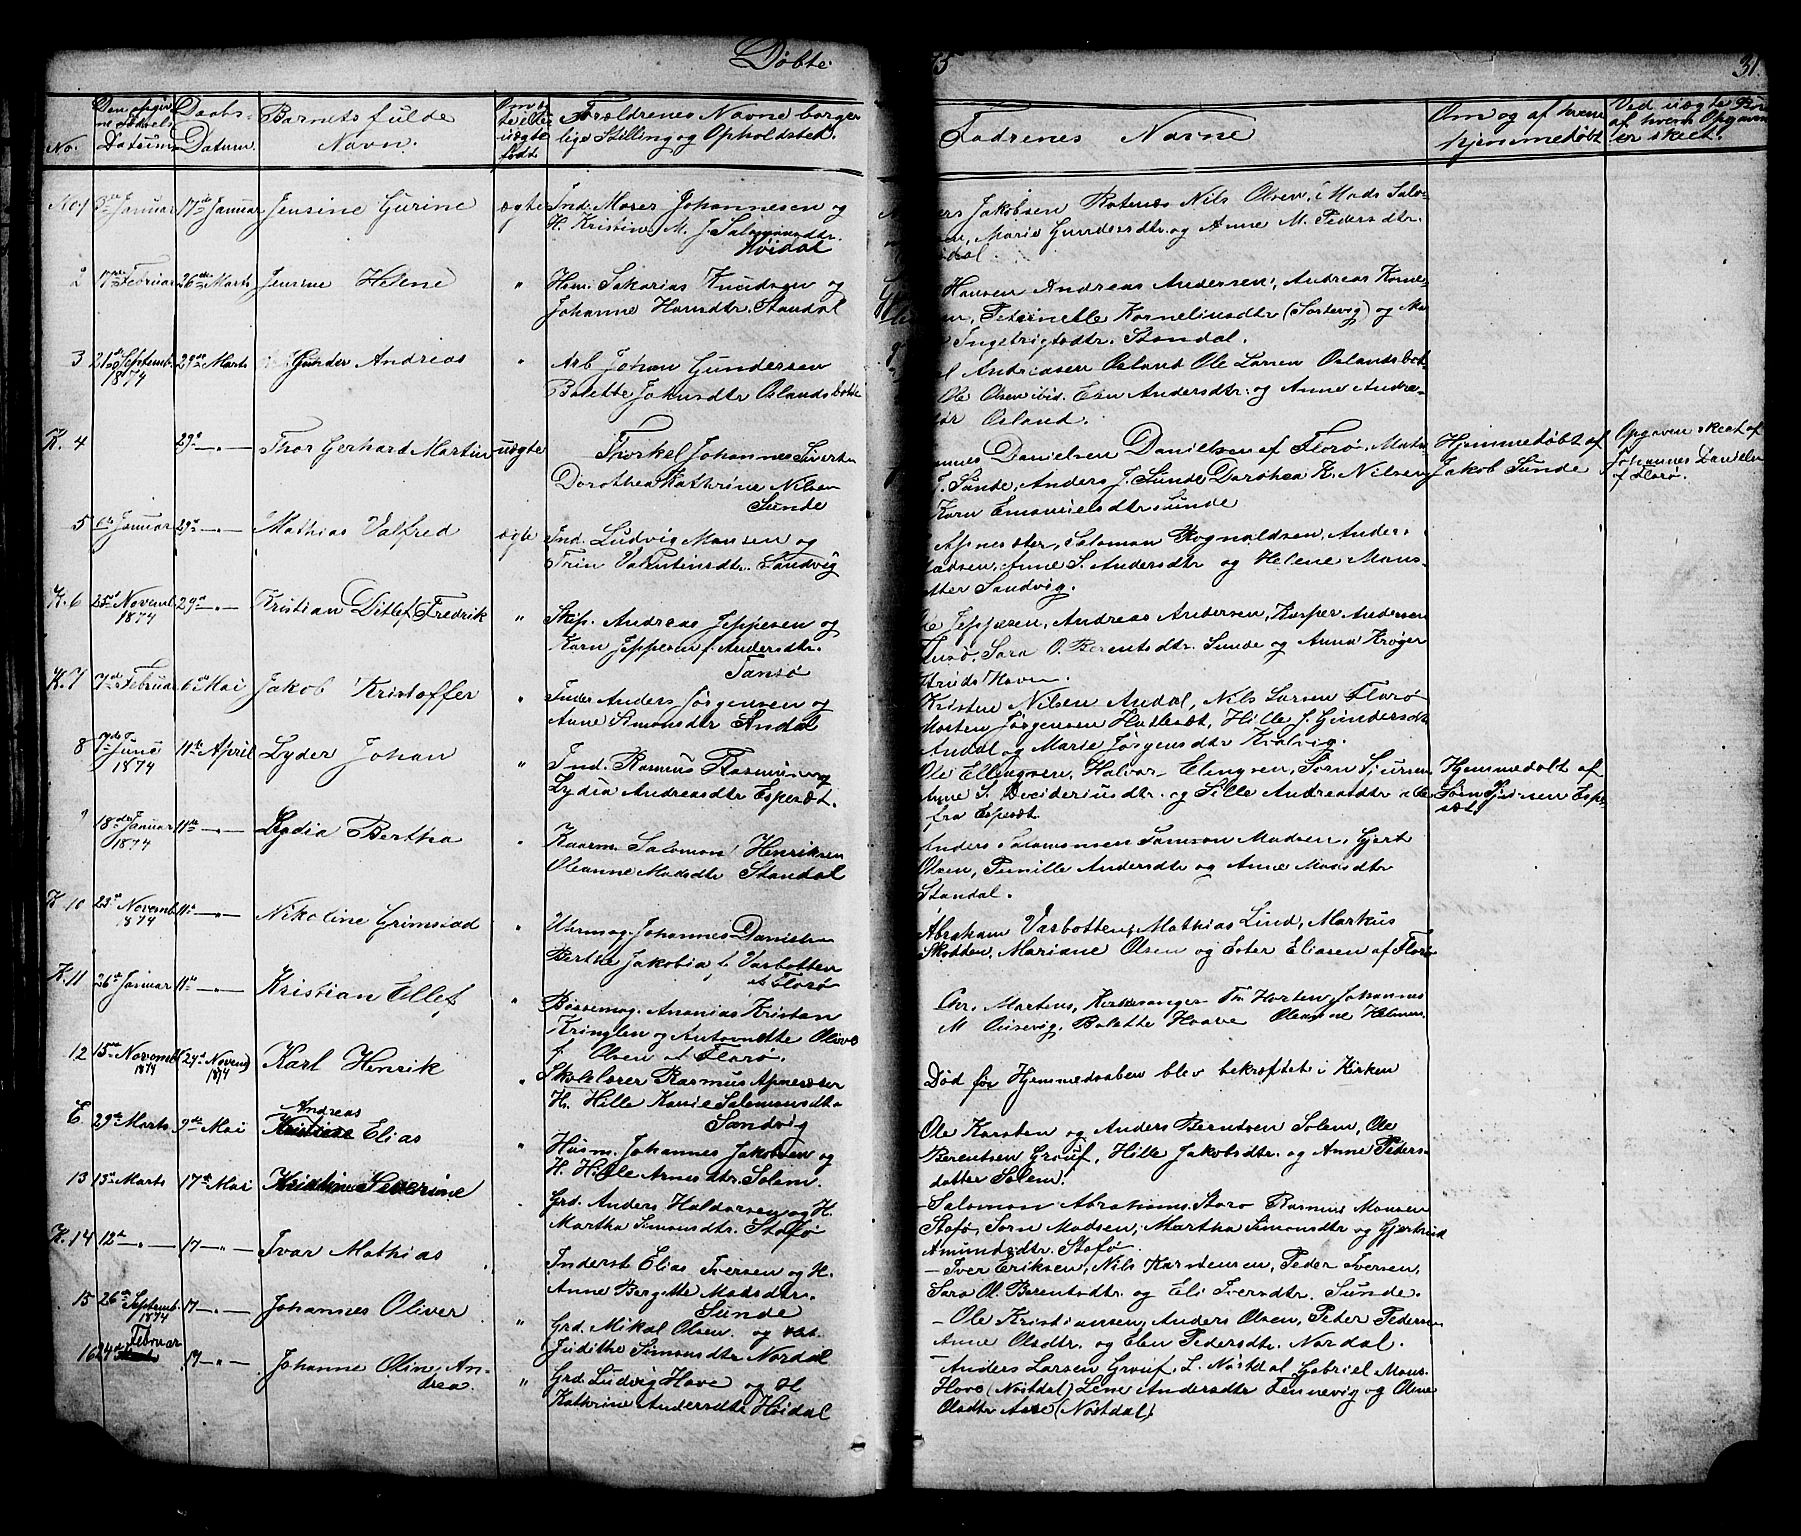 Døbte
75
31
No.
Den opgiv
ne Fødsels
Datum
Daabs-
Datum
Barnets fulde
Navn.
Om æg
te eller
uægte
født
Forældrenes Navne borger
lige Stilling og Opholdsted.
Fadrenes Navne
Om og af hvem
hjemmedøbt
Ved uægte Bør
af hvem Opgaven
er skeet.
No 1 3die Januar 17de Januar Jensine Gurine ægte Ind. Moser Johannesen og
H. Kristin M. J. Salomonsdtr.
Høidal
Jakobsen Rotenæs Nils Olsen, Mads Salo-
Marie Gundersdtr. og Anne M. Pedersdtr.
2 17de Februar 26de Marts Jensine Helene " Hsm. Sakarias Knudsen og
Johanne Hansdtr. Standal
Hansen Andreas Andersen, Andreas Korne-
Peternelle Korneliusdtr (Sortevig) og Ma
Ingebrigtsdtr. Standal.
3 21de Septemb. 1874 29de Marts Gunder Andreas " Arb Johan Gundersen
Balette Johnsdtr Oslandsbotte
Andreasen Osland Ole Larsen Oslandsbot-
Ole Olsen ibid. Elen Andersdtr. og Anne Andre-
Osland.
K. 4 29de —"— Thor Gerhard Martin uægte Thorkel Johannes Sivert
Dorothea Kathrine Nilsen
Sunde
Danielsen Danielsen af Florø, Mats
J. Sunde, Anders J. Sunde Dorothea K. Nilsen
Karn Emanuelsdtr Sunde
Hjemmedøbt af
Jakob Sunde
Opgaven skeet af
Johannes Daniels
af Florø.
5 6te Januar 29de —"— Mathias Valfred ægte Ind. Ludvig Monsen og
Trin Valentinsdtr. Sandvig
Salomon Rognaldsen, Ander-
Madsen, Anne S. Andersdtr og Helene Mons-
datter Sandvig.
K. 6 25de Novemb 1874 29de —"— Kristian Ditlef Fredrik " Skip. Andreas Jeppesen og
Karn Jeppesen f. Andersdtr.
Tansø
Jeppesen, Andreas Andersen, Kasper Andersen
Sara O. Berentsdtr. Sunde og Anna Krøger
Havn.
K. 7 7de Februar 6te Mai Jakob Kristoffer " Inder Anders Jørgensen og
Anne Simonsdtr Andal
Kristen Nilsen Andal, Nils Larsen Florø
Morten Jørgensen Hatlesæt, Hille J. Gundersdt
Andal og Marie Jørgensdtr Kvalvig.
8 Juni 1874 11te April Lyder Johan " Ind. Rasmus Rasmusen og
Lydia Andreasdtr Espesæt.
Ole Ellingsen, Halvar Elingsen, Sørn Sjursen
Anne S. Decideriusdtr. og Sille Andreasdtr alle
fra Espesæt
Hjemmedøbt af
Sørn Sjursen Espe
sæt
9 18de Januar 1874 11te —"— Lydia Bertha " Kaarm. Salomon Henriksen
Oleanne Madsdtr Standal
Anders Salomonsen Samson Madsen, Gjert
Olsen, Pernille Andersdtr og Anne Madsdtr
Standal.
K 10 23de Novemb 1874 11te —"— Nikoline Grimsiad " Uhrmag. Johannes Danielsen
Berthe Jakobia f. Varbotten
af Florø
Abraham Varbotten, Mathias Lind, Markus
Skotten, Mariane Olsen og Ester Eliasen af Florø
K. 11 26de Januar 11te —"— Kristian Ellef " Bøssemag. Ananias Kristan
Kringlen og Antonette Olive
f. Olsen af Florø.
Chr. Martens, Kirkesanger Th. Horten, Johannes
M Ousevig, Balette Haave Oleanne Helmers
12 15de Novemb 1874 (29de Novemb) 1874 Karl Henrik " Skolelærer Rasmus Apnesæter
H. Hille Karrie Salomonsdtr
Sandvig
Død før Hjemmedaaben blev bekræftet i Kirken
E. 29de Marts 9de Mai Andreas
Elias
" Husm. Johannes Jakobsen og
H. Hille Arnesdtr. Solem.
Ole Karsten og Anders Berntsen Solem, Ole
Berentsen Grouf, Hille Jakobsdtr. og Anne Peders-
datter Solem.
13 15de Marts 17de Mai Kristine Severine Grd. Anders Haldorsen og H.
Martha Simonsdtr. Stafø
Salomon Abrahams. Storø Rasmus Monsen
Stafø, Sørn Madsen, Martha Simonsdtr og Gjertrud
Amundsdtr. Stafø.
K. 14 12te —"— 17 —"— Ivar Mathias Inderst Elias Iversen og H.
Anne Bergitte Matsdtr.
Sunde
— Iver Eriksen, Nils Karstensen, Peder Iversen,
Sara O. Berentsdtr og Eli Iversdtr. Sunde.
15 26de Septemb. 1874 17 —"— Johannes Oliver " Grd. Mikal Olsen og
Judithe Simonsdtr. Nordal
— Ole Kristiansen, Anders Olsen, Peter Pedersen
Anne Olsdtr og Elen Pedersdtr. Nordal.
16 24de Februar 17 —"— Johanne Oline An-
drea.
" Grd. Ludvig Hove og H
Kathrine Andersdtr Høidal
— Anders Larsen Grouf, L. Nøstdal Gabriel Mons.
Hove (Nøstdal) Lene Andersdtr Tennevig og Oline
Olsdtr Aase (Nøstdal)